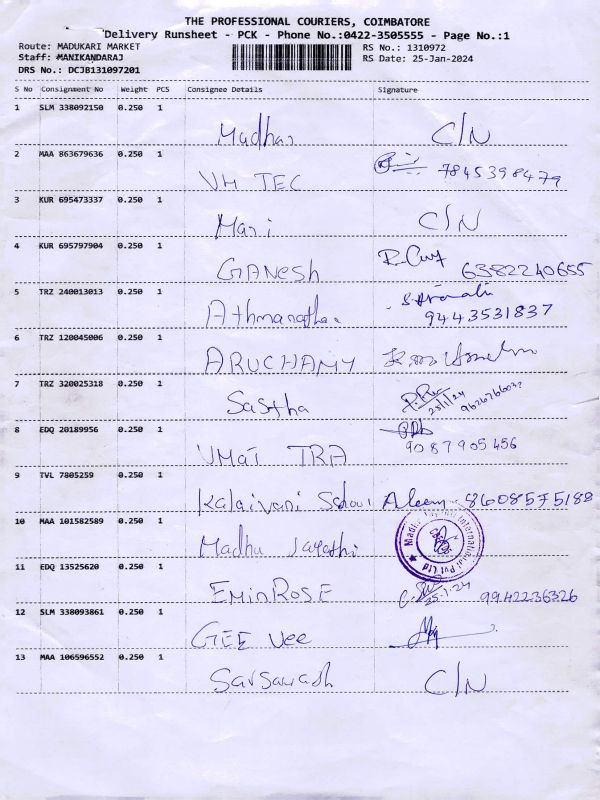 THE PROFESSIONAL COURIERS, COIMBATORE
Delivery Runsheet - PCK - Phone No.:0422-3505555 - Page No.:1
Route: MADUKARI MARKET RS No.: 1310972
Staff: MANIKANDARAJ RS Date: 25-Jan-2024
DRS No.: DCJB131097201
S No Consignment No Weight PCS Consignee Details Signature
1 SLM 338092150 0.250 1
Madhav C/N
2 MAA 863679636 0.250 1
VH TEC 7845398479
3 KUR 695473337 0.250 1
Mari C/N
4 KUR 695797904 0.250 1
GANesh 6382240655
5 TRZ 240013013 0.250 1
Athmanathan 9443531837
6 TRZ 120045006 0.250 1
ARUCHAMY
7 TRZ 320025318 0.250 1
Sastha 25/1/24
8 EDQ 20189956 0.250 1
UMai TRA 9087905456
9 TVL 7805259 0.250 1
Kalaivani School Aleem 8608575188
10 MAA 101582589 0.250 1
Madhu Jayathi International Pvt Ltd
11 EDQ 13525620 0.250 1
EminRose 25.1.24 9942236326
12 SLM 338093861 0.250 1
GEE Vee
13 MAA 106596552 0.250 1
C/N